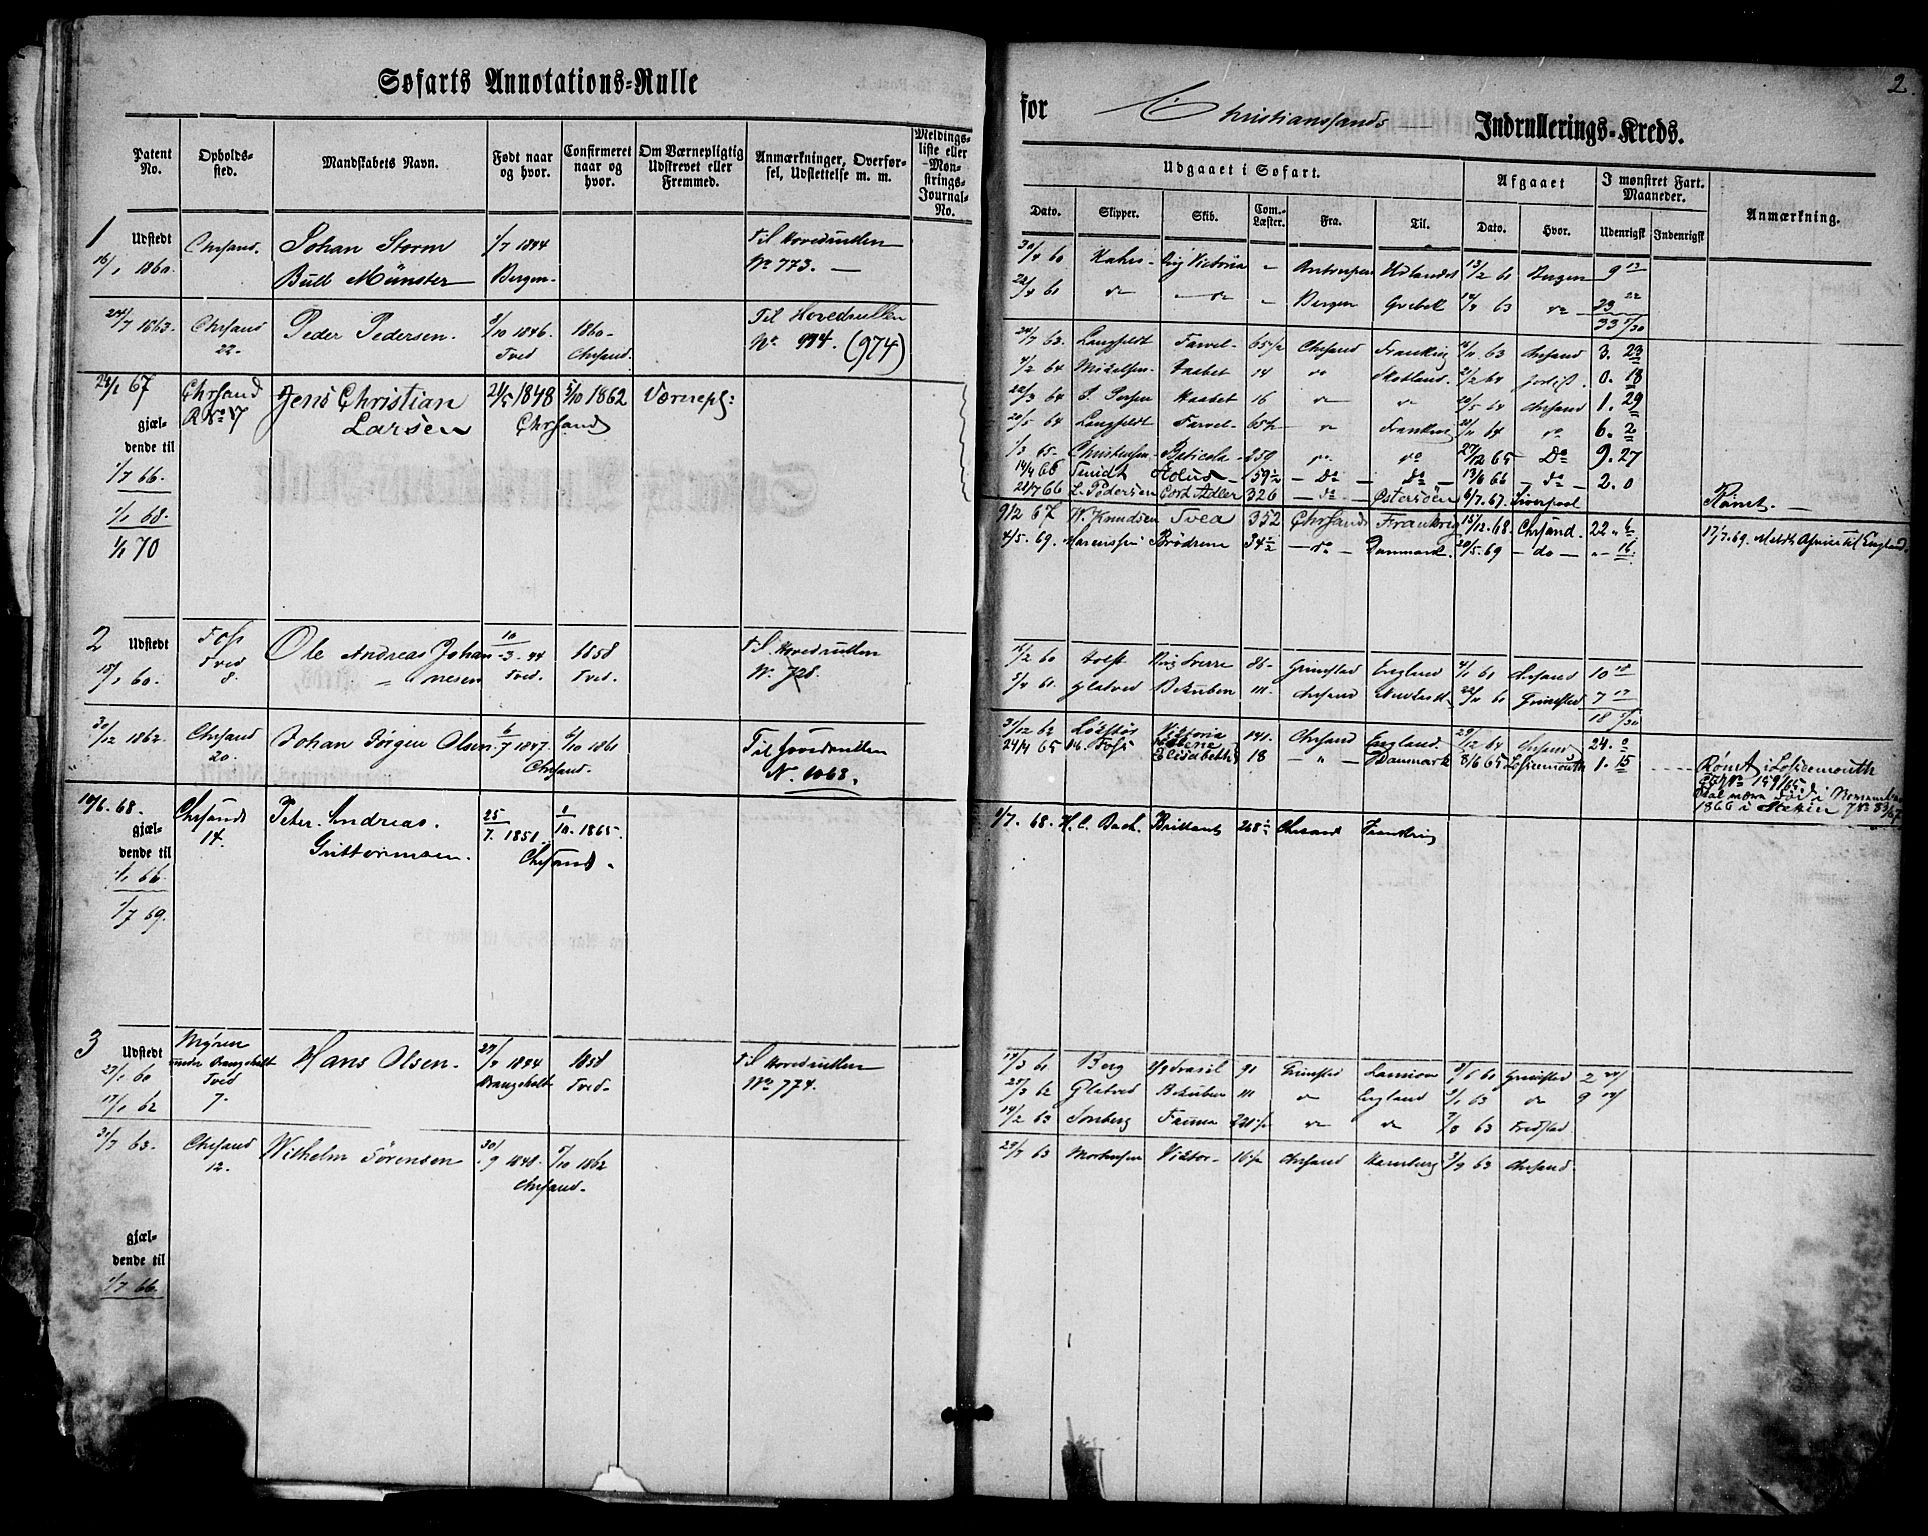 Søfarts Annotations-Rulle
Patent No.
Opholds-sted.
Mandskabets Navn.
Født naar og hvor.
Confirmeret naar og hvor.
Om Værnepligtig Udskrevet eller Fremmed.
Anmærkninger, Overførsel, Udslettelse m. m.
Meldings-liste eller Mønstrings-Journal-No.
1 Udstedt
16/1 1860.
Chrsand.
Johan Storm
Bull Münster
1/7 1844
Bergen
Til Hovedrullen
No 773. —
24/7 1863.
Chrsand
22.
Peder Pedersen.
3/10 1846.
Tved
1860.
Chrsand.
Til Hovedrullen
No 994. (974)
24/1 67
gjæl-
dende til
1/7 66.
1/1 68.
1/1 70
Chrsand
R No 17
Jens Christian
Larsen
24/5 1848
Chrsand
5/10 1862
Værnepl:
2 Udstedt
18/1 60.
Foss
Tved
8.
Ole Andreas Johan
nesen
10/3 44
Tved.
1858
Tved.
Til Hovedrullen
No 728.
30/12 1862.
Chrsand
20.
Johan Jörgen Olsen
6/7 1847.
Chrsand.
6/10 1861
Til Hovedrullen
N. 1068.
19/6. 68.
gjæl-
dende til
1/1 66.
1/7 69.
Chrsand
14.
Peter Andreas.
Guttormsen.
25/7. 1851.
Chrsand.
1/10. 1865.
3 Udstedt
27/1 60
17/1 62
Myren
under Brangsholt
Tved
7.
Hans Olsen.
27/7 1844
Brangsholt
1858
Tved.
Til Hovedrullen
No 774.
31/7 63.
Chrsand
12.
Wilhelm Sörensen
30/9 1848.
Chrsand.
5/10 1862
gjæl-
dende til
1/7 66.
2.
for Christianssands Indrullerings-Kreds.
Udgaaet i Søfart.
Afgaaet
I mønstret Fart. Maaneder.
Anmærkning.
Dato.
Skipper.
Skib.
Com.-Læster.
Fra.
Til.
Dato.
Hvor.
Udenrigsk
Indenrigsk
30/4 60 Brig Victoria " Antverpen Udlandet 13/2 61 Bergen 9 12
22/4 61 do — do " Bergen 14/4 63 do 23 22
33 4/30
24/7 63. Langfeldt Farvel 65 1/2 Chrsand Frankrig 16/11 63 Chrsand 3. 23
4/2 64 Haabet 14 do Skotland. 21/2 64 0. 18
22/3 64 Haabet 16 do do 20/5 64 Chrsand 1. 29
20/5 64 Langfeldt Farvel 65 1/2 do Frankrig 20/11 64 do 6. 2
1/3 65 Christensen 250 do do 27/12 65 Do 9. 27
14/4 66 59 1/2 — Do — do — 13/6 66 — do — 2. 0
28/7 66 L. Pedersen Cort Adler 326 — do — Østersöen 6/7. 67. Liverpool Römt. —
9/2 67 W. Knudsen Svea 352 Chrsand Frankrig 15/12. 68. Chrsand. 22 " 6
4/5. 69. Brödrene 34 1/2 — do — Danmark. 20/5. 69 — do — " . 16 17/7. 69. Meldt Afreise til England.
16/2 60 Holst Brig Sverre 86 Grimstad England 4/1 61 Chrsand 10 18
5/4 61. Glatved Bikuben 111 Chrsand 22/11 61 Grimstad 7 12
18 /30
31/12 62 Victoria 141. Chrsand England. 29/12 64 Chrsand 24. 0
24/4 65 Foss Helene Elisabeth 18 — " — Danmark 8/6 65 Lossiemouth 1. 15 Römt i Lossiemouth
1866 i
1/7. 68. H. C. Bach. Brillant 268 1/2 Chrsand Frankrig
14/3 61 Berg 91 Grimstad 2/6 61 Grimstad 2
25/3 62 Glatved Bikuben 111 do England 3/1 63 do 9
19/2 63 221 1/2 do do 7/8 63 Fredstad.
24/7 63 Mortensen Victor 16 1/2 Chrsand 3/9 63 Chrsand.